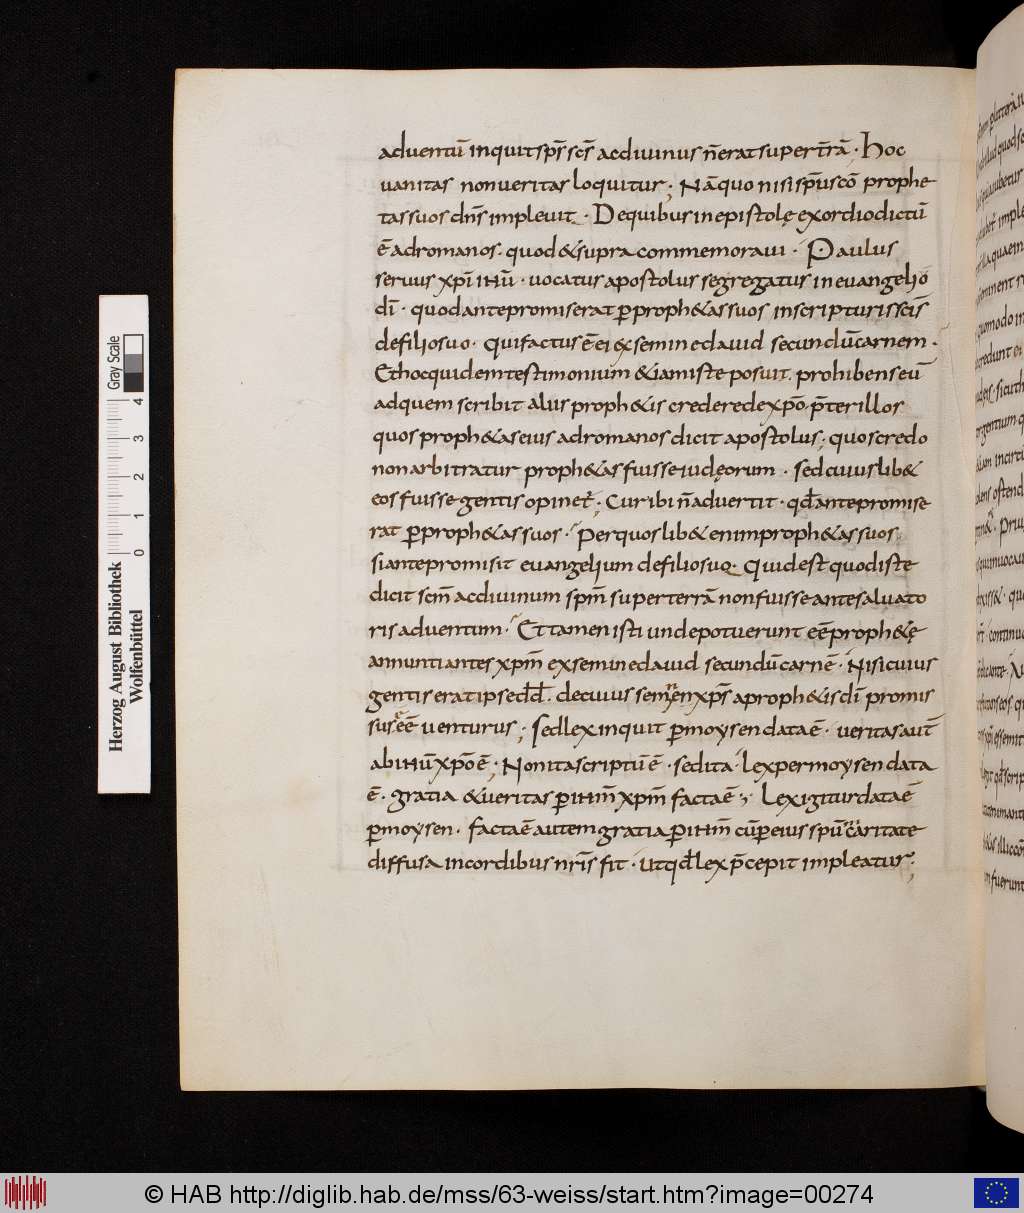 aduentū inquit sp̄s sc̄s ac diuinus n̄ erat super tr̄ā · Hoc
uanitas non ueritas loquitur; Nā quo nisi sp̄u sc̄o prophe
tas suos dn̄s impleuit · De quibus in epistolę exordio dictū
ē ad romanos · quod & supra commemoraui · Paulus
seruus xp̄i ih̄u · uocatus apostolus segregatus in euangelio
dī · quod ante promiserat ꝑ proph&as suos in scripturis sc̄is
de filio suo · qui factus ē ei ex semine dauid secundū carnem ·
Et hoc quidem testimonium &iam iste posuit, prohibens eū
ad quem scribit alus proph&is credere de xp̄o, p̄ter illos
quos proph&as eius ad romanos dicit apostolus; quos credo
non arbitratur proph&as fuisse iudęorum · sed cuius lib&
eos fuisse gentis opinet᷑; Cur ibi n̄ aduertit · qđ ante promise
rat ꝑ proph&as suos · Per quos lib& enim proph&as suos
si ante promisit euangelium de filio suo · Quid est quod iste
dicit sc̄m ac diuinum sp̄m super terrā non fuisse ante saluato
ris aduentum · Et tamen isti unde potuerunt eē proph&ę
annuntiantes xp̄m ex semine dauid secundū carnē · Nisi cuius
gentis erat ipse dd̄ · de cuius semine xp̄s a proph&is dī promis
sus eē uenturus; Sed lex inquit ꝑ moysen data ē · ueritas aut̄
ab ih̄u xp̄o ē; Non ita scriptū ē · sed ita · lex per moysen data
ē · gratia & ueritas ꝑ ih̄m xp̄m facta ē; Lex igitur data ē
ꝑ moysen · facta ē autem gratia ꝑ ih̄m cū ꝑ eius spū caritate
diffusa in cordibus nr̄is fit · ut qđ lex p̄cepit impleatur;
Gray Scale
0 1 2 3 4
Herzog August Bibliothek
Wolfenbüttel
© HAB http://diglib.hab.de/mss/63-weiss/start.htm?image=00274